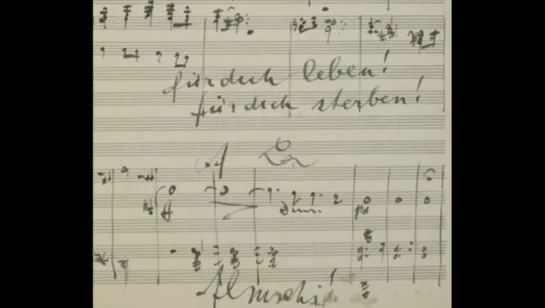 für dich leben!
für dich sterben!
ff
dim.
pp
Almschi!